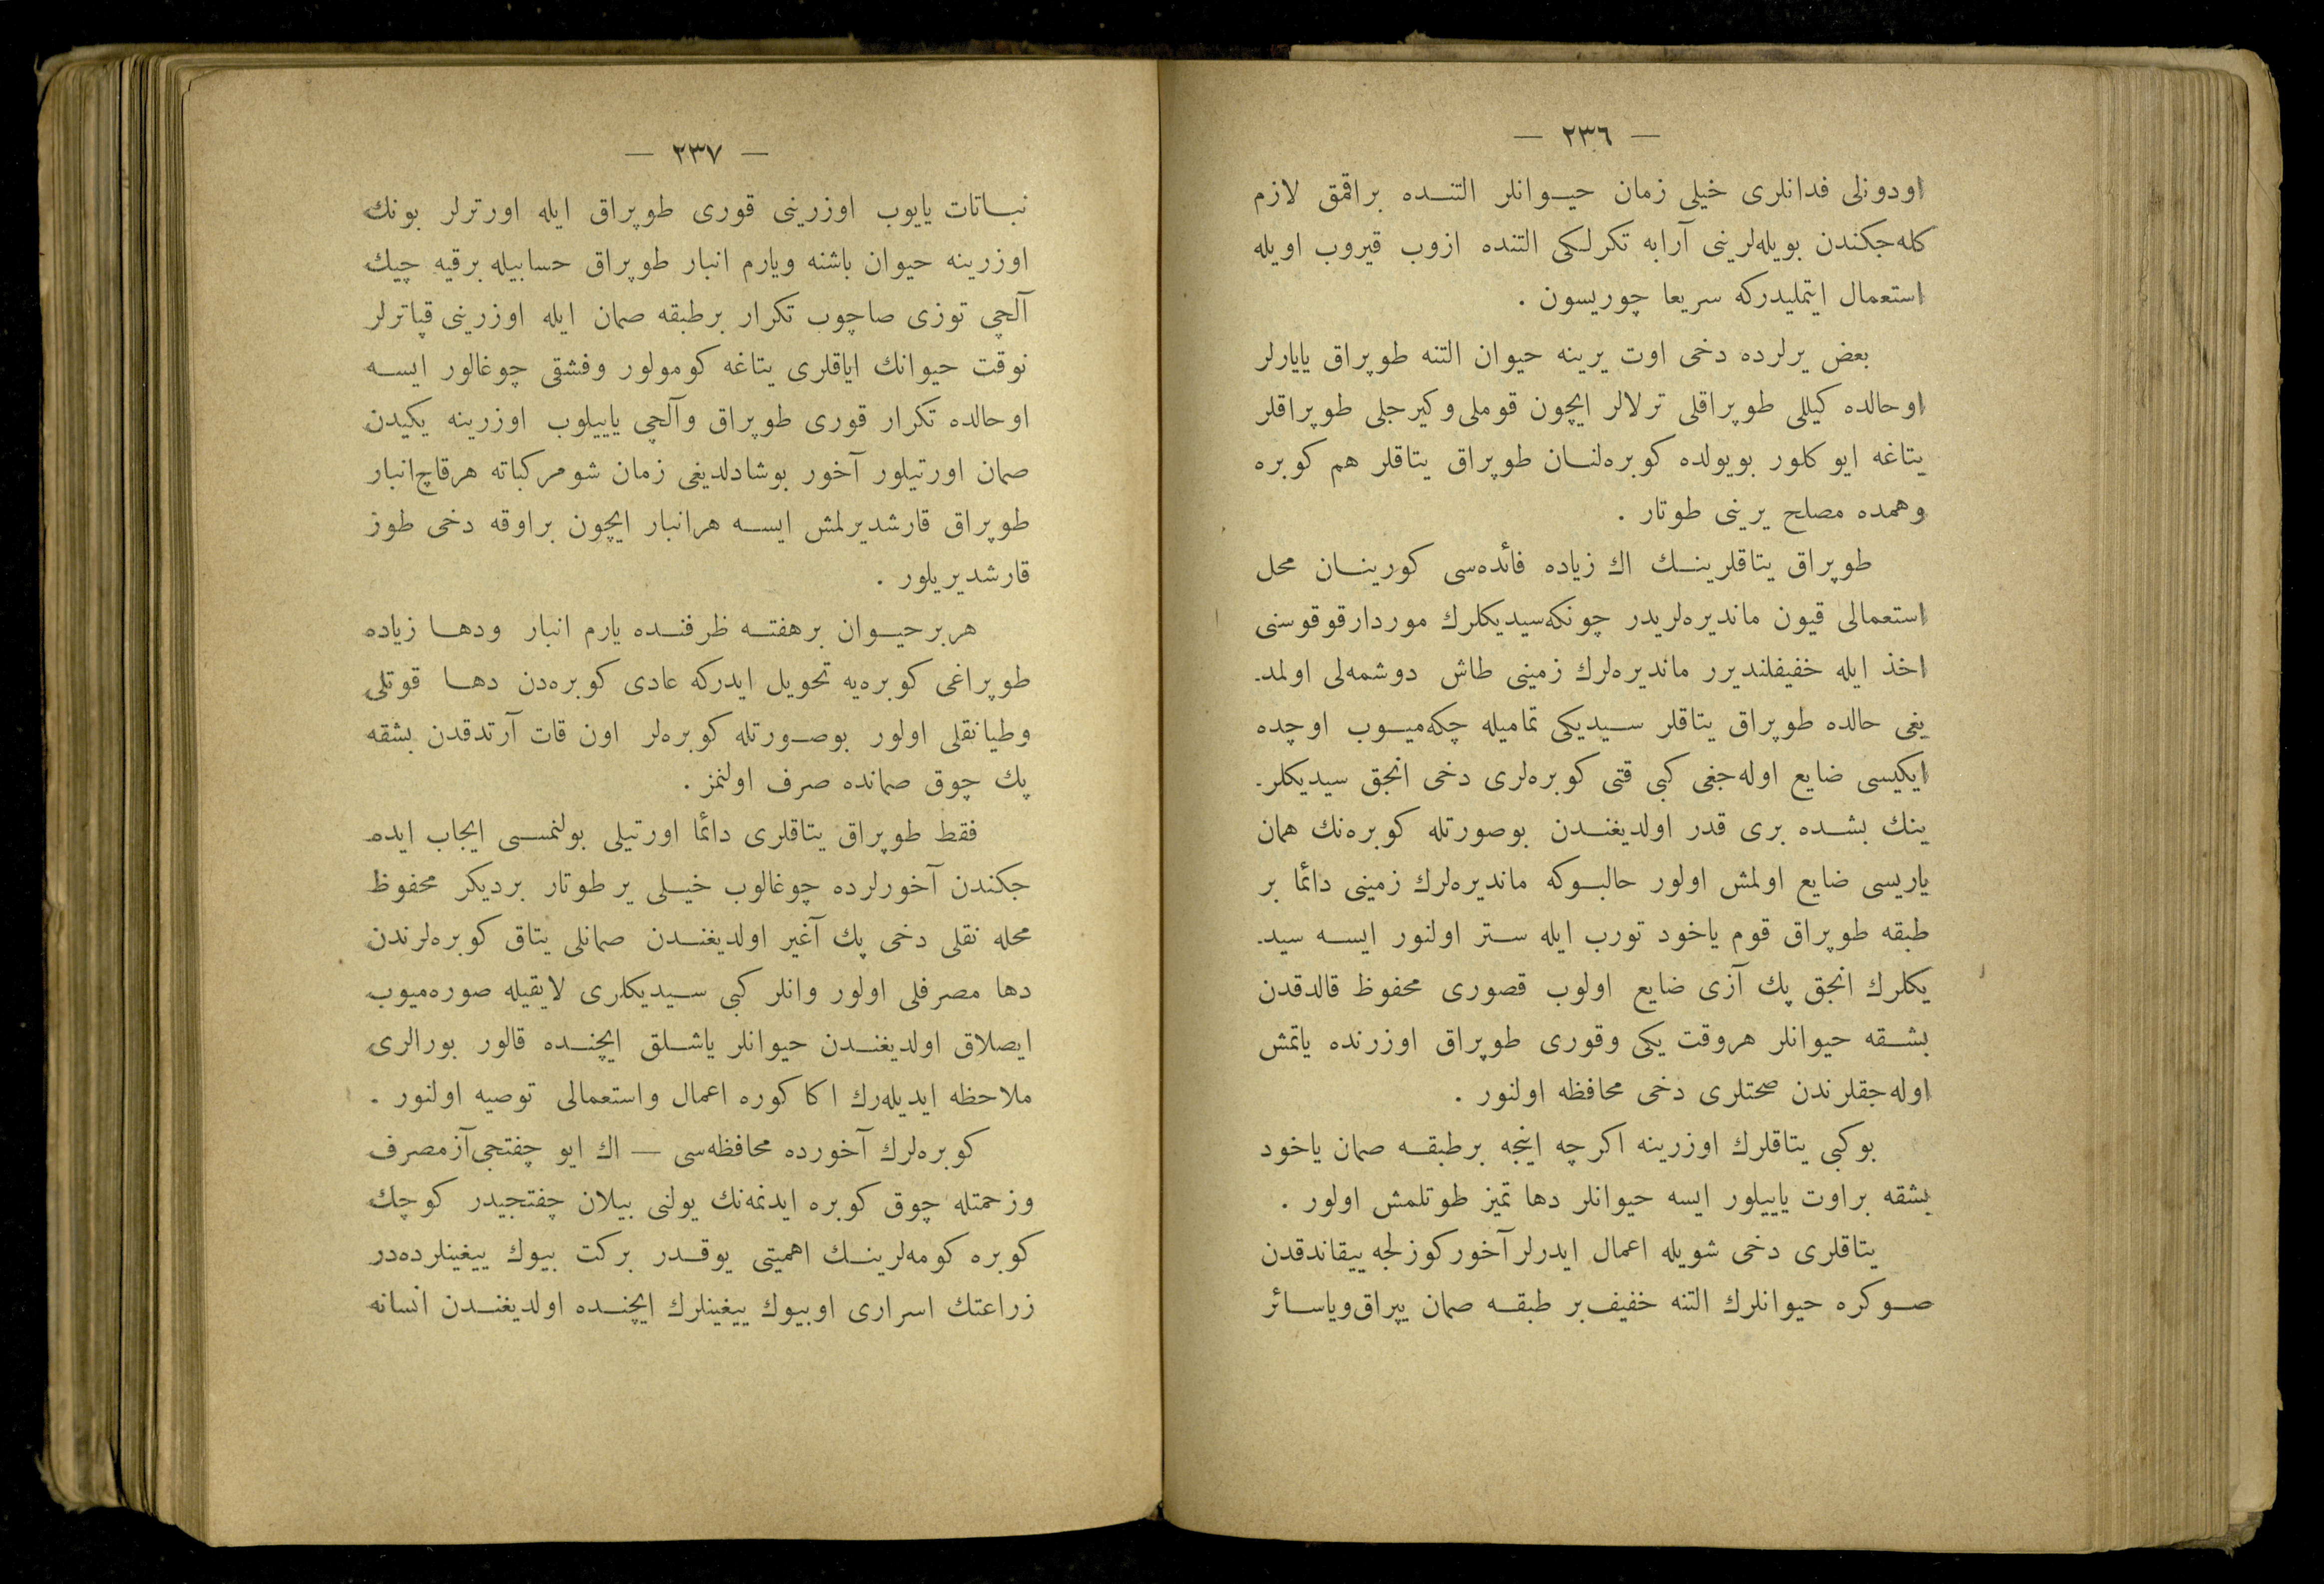 — ٢٣٦ —
اودونلى فدانلرى خيلى زمان حيوانلر التنده براقمق لازم
كله‌جكندن بويله‌لرينى آرابه تكرلكى التنده ازوب قيروب اويله
استعمال ايتمليدركه سريعا چوريسون .
بعض يرلرده دخى اوت يرينه حيوان التنه طوپراق يايارلر
اوحالده كيللى طوپراقلى ترلالر ايچون قوملى وكيرجلى طوپراقلر
يتاغه ايو كلور بويولده كوبره‌لنان طوپراق يتاقلر هم كوبره
وهمده مصلح يرينى طوتار .
طوپراق يتاقلرينك اك زياده فائده‌سى كورينان محل
استعمالى قيون مانديره‌لريدر چونكه‌سيديكلرك موردارقوقوسنى
اخذ ايله خفيفلنديرر مانديره‌لرك زمينى طاش دوشمه‌لى اولمد-
يغى حالده طوپراق يتاقلر سيديكى تماميله چكه‌ميوب اوچده
ايكيسى ضايع اوله‌جغى كبى قتى كوبره‌لرى دخى انجق سيديكلر-
ينك بشده برى قدر اولديغندن بوصورتله كوبره‌نك همان
ياريسى ضايع اولمش اولور حالبوكه مانديره‌لرك زمينى دائما بر
طبقه طوپراق قوم ياخود تورب ايله ستر اولنور ايسه سيد-
يكلرك انجق پك آزى ضايع اولوب قصورى محفوظ قالدقدن
بشقه حيوانلر هروقت يكى وقورى طوپراق اوزرنده ياتمش
اوله‌جقلرندن صحتلرى دخى محافظه اولنور .
بوكبى يتاقلرك اوزرينه اكرچه اينجه برطبقه صمان ياخود
بشقه براوت ياييلور ايسه حيوانلر دها تميز طوتلمش اولور .
يتاقلرى دخى شويله اعمال ايدرلر آخور كوزلجه ييقاندقدن
صوكره حيوانلرك التنه خفيف بر طبقه صمان يپراق وياسائر
— ٢٣٧ —
نباتات يايوب اوزرينى قورى طوپراق ايله اورترلر بونك
اوزرينه حيوان باشنه ويارم انبار طوپراق حسابيله برقيه چيك
آلچى توزى صاچوب تكرار برطبقه صمان ايله اوزرينى قپاترلر
نوقت حيوانك اياقلرى يتاغه كومولور وفشقى چوغالور ايسه
اوحالده تكرار قورى طوپراق وآلچى ياييلوب اوزرينه يكيدن
صمان اورتيلور آخور بوشادلديغى زمان شومركباته هرقاچ انبار
طوپراق قارشديرلمش ايسه هرانبار ايچون براوقه دخى طوز
قارشديريلور .
هربرحيوان برهفته ظرفنده يارم انبار ودها زياده
طوپراغى كوبره‌يه تحويل ايدركه عادى كوبره‌دن دها قوتلى
وطيانقلى اولور بوصورتله كوبره‌لر اون قات آرتدقدن بشقه
پك چوق صمانده صرف اولنمز .
فقط طوپراق يتاقلرى دائما اورتيلى بولنمسى ايجاب ايده
جكندن آخورلرده چوغالوب خيلى ير طوتار برديكر محفوظ
محله نقلى دخى پك آغير اولديغندن صمانلى يتاق كوبره‌لرندن
دها مصرفلى اولور وانلر كبى سيديكلرى لايقيله صوره‌ميوب
ايصلاق اولديغندن حيوانلر ياشلق ايچنده قالور بورالرى
ملاحظه ايديله‌رك اكا كوره اعمال واستعمالى توصيه اولنور .
كوبره‌لرك آخورده محافظه‌سى — اك ايو چفتجى آزمصرف
وزحمتله چوق كوبره ايدنمه‌نك يولنى بيلان چفتجيدر كوچك
كوبره كومه‌لرينك اهميتى يوقدر بركت بيوك ييغينلرده‌در
زراعتك اسرارى اوبيوك ييغينلرك ايچنده اولديغندن انسانه